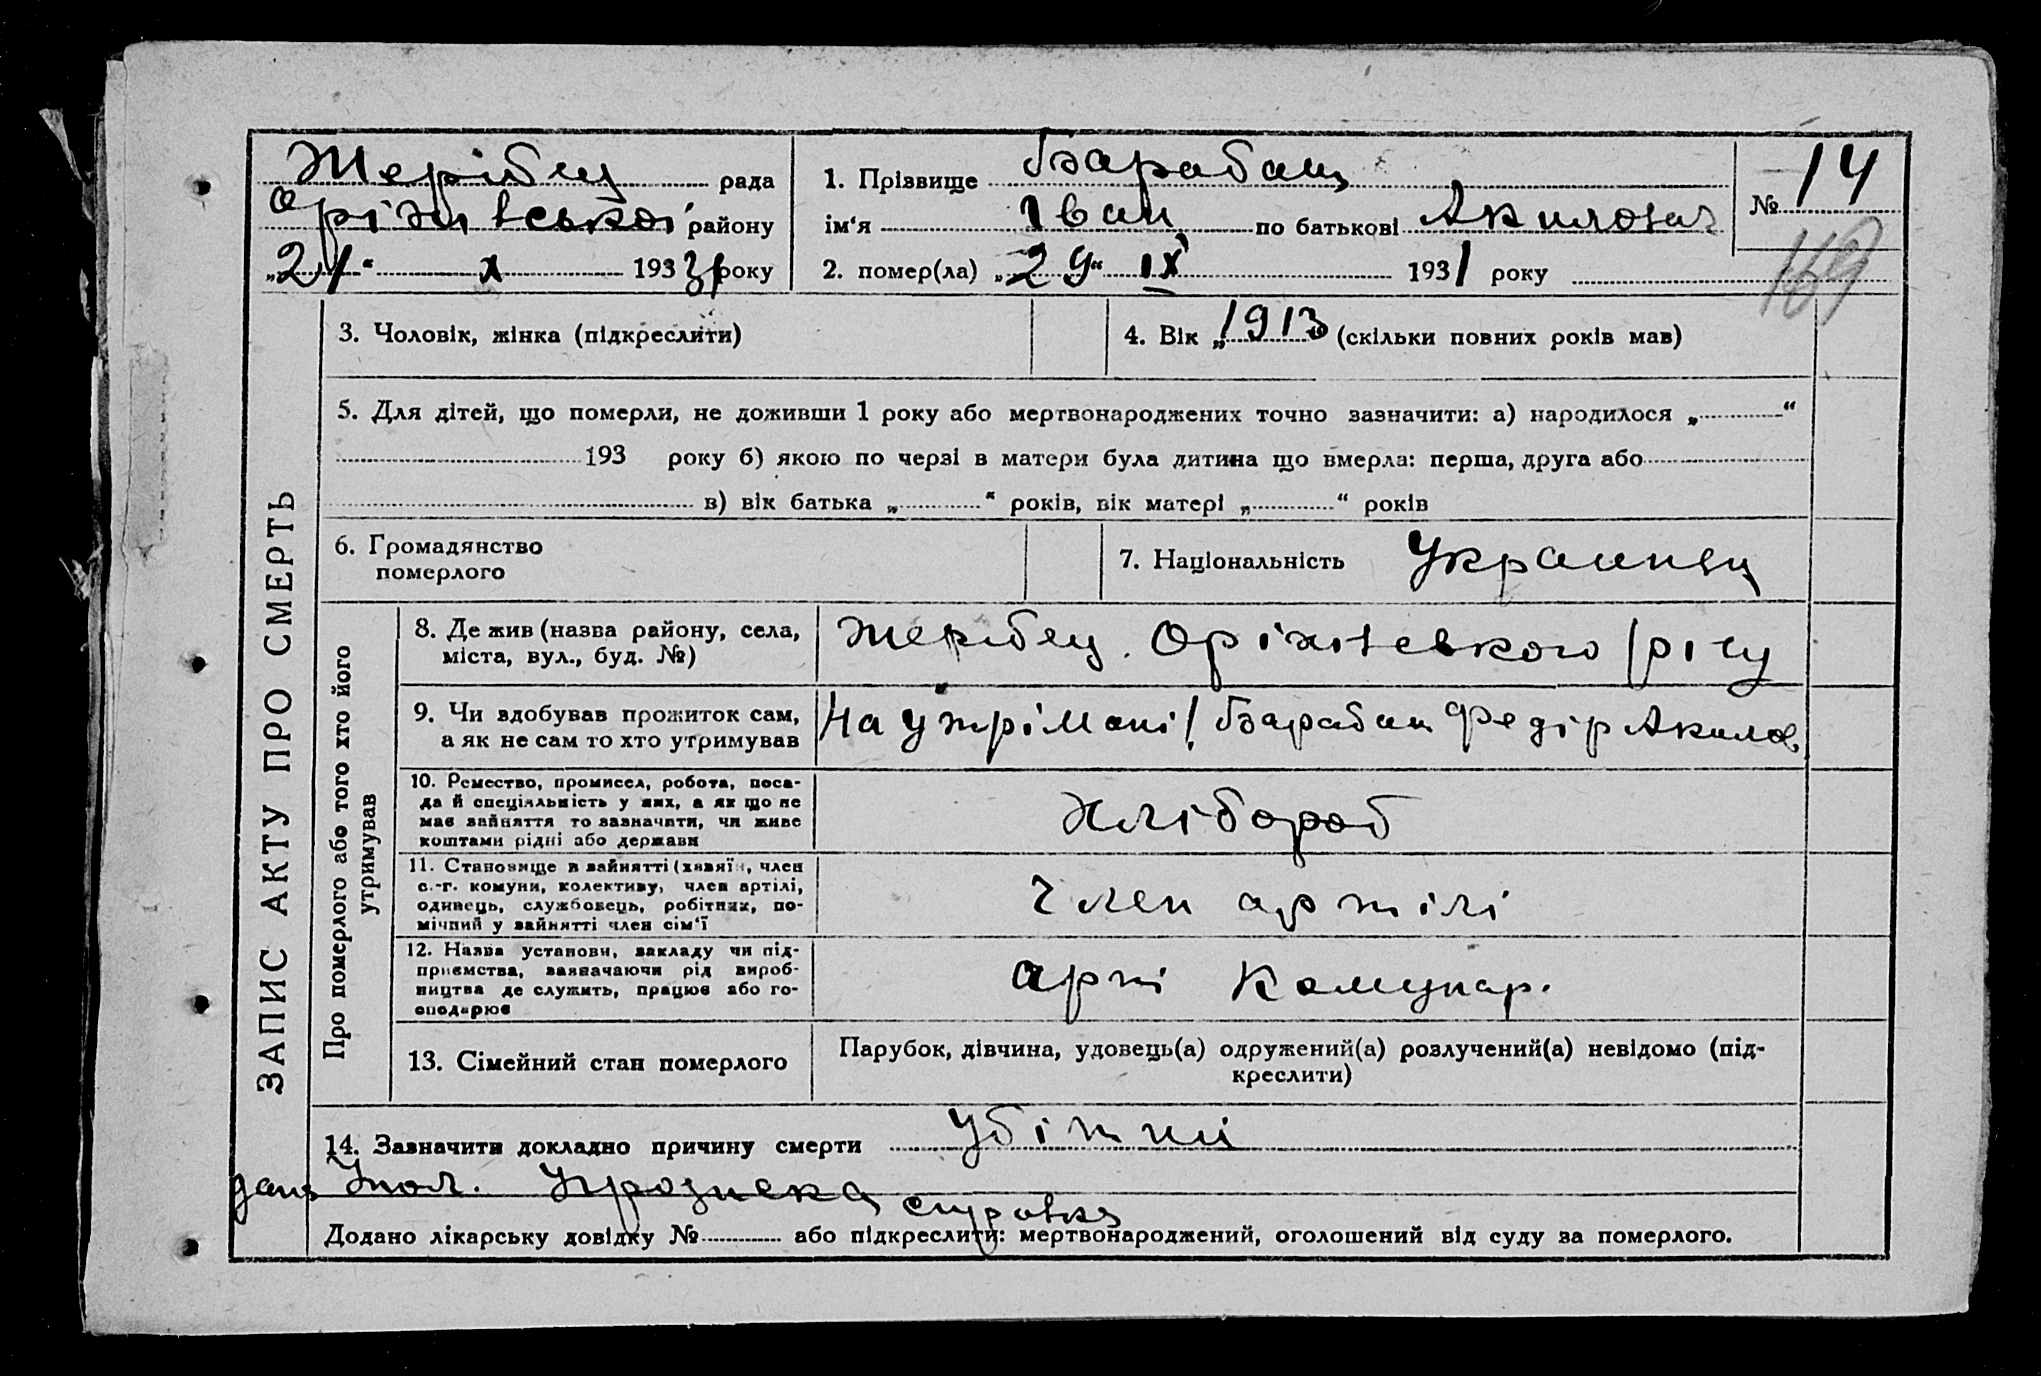 Жерібец рада
Оріхівської району
„21“ X 1931 року
1. Прізвище Барабаш
ім‘я Іван по батькові Акилович
2. помер(ла) „29“ IX 1931 року
№ 14
169
ЗАПИС АКТУ ПРО СМЕРТЬ
3. Чоловік, жінка (підкреслити)
4. Вік „1913“ (скільки повних років мав)
5. Для дітей, що померли, не доживши 1 року або мертвонароджених точно зазначити: а) народилося „ “
193 року б) якою по черзі в матери була дитина що вмерла: перша, друга або
в) вік батька „ “ років, вік матері „ “ років
6. Громадянство
померлого
7. Національність Украинец
Про померлого або того хто його
утримував
8. Де жив (назва району, села,
міста, вул., буд. №)
Жерібец. Оріхівського
9. Чи здобував прожиток сам,
а як не сам то хто утримував
На утрімані Барабаш Федір Акилов
10. Ремество, промисел, робота, поса-
да й спеціяльність у них, а як що не
має зайняття то зазначити, чи живе
коштами рідні або держави
Хлібороб
11. Становище в зайнятті (хазяїн, член
с.-г. комуни, колективу, член артілі,
одинець, службовець, робітник, по-
мічний у зайнятті член сім‘ї
Член артілі
12. Назва установи, закладу чи під-
приємства, зазначаючи рід вироб-
ництва де служить, працює або го-
сподарює
Арті Комунар.
13. Сімейний стан померлого
Парубок, дівчина, удовець(а) одружений(а) розлучений(а) невідомо (під-
креслити)
14. Зазначити докладно причину смерти Убітий
справка
Додано лікарську довідку № або підкреслити: мертвонароджений, оголошений від суду за померлого.